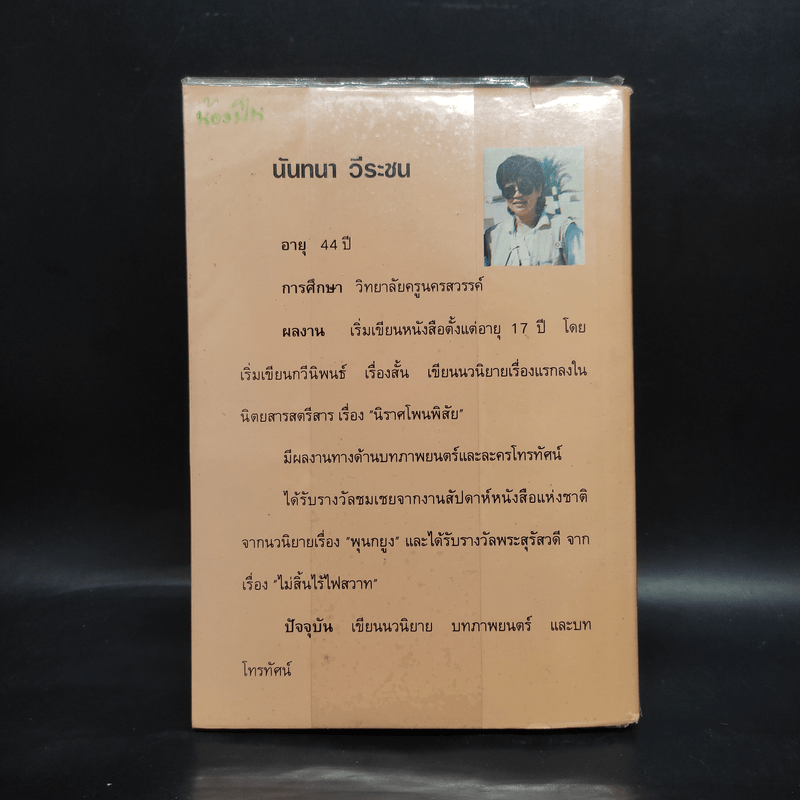 น้องปีใหม่
นันทนา วีระชน
อายุ 44 ปี
การศึกษา วิทยาลัยครูนครสวรรค์
ผลงาน เริ่มเขียนหนังสือตั้งแต่อายุ 17 ปี โดย
เริ่มเขียนกวีนิพนธ์ เรื่องสั้น เขียนนวนิยายเรื่องแรกลงใน
นิตยสารสตรีสาร เรื่อง "นิราศโพนพิสัย"
มีผลงานทางด้านบทภาพยนตร์และละครโทรทัศน์
ได้รับรางวัลชมเชยจากงานสัปดาห์หนังสือแห่งชาติ
จากนวนิยายเรื่อง "พุนกยูง" และได้รับรางวัลพระสุรัสวดี จาก
เรื่อง "ไม่สิ้นไร้ไฟสวาท"
ปัจจุบัน เขียนนวนิยาย บทภาพยนตร์ และบท
โทรทัศน์